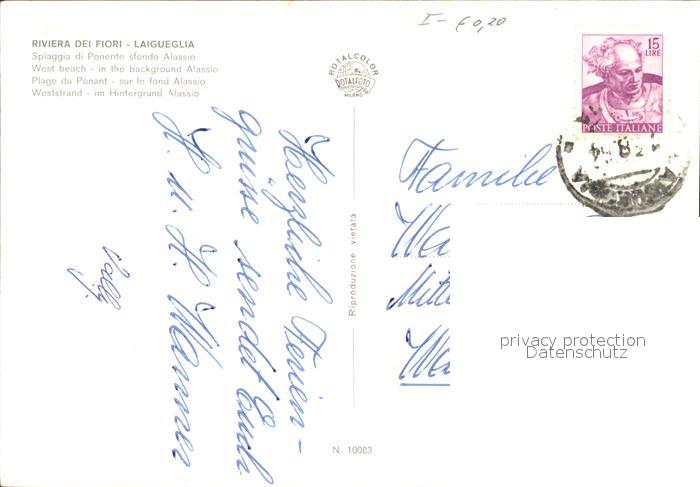 I - € 0,20
RIVIERA DEI FIORI - LAIGUEGLIA
Spiaggia di Ponente sfondo Alassio
West beach - in the background Alassio
Plage du Ponant - sur le fond Alassio
Weststrand - im Hintergrund Alassio
ROTALCOLOR
ROTALFOTO
MILANO
15
LIRE
POSTE ITALIANE
Herzliche Ferien-
grüsse sendet Euch
H. u. H. Wanner
Riproduzione vietata
Familie
Wa
Mite
Wa
privacy protection
Datenschutz
N. 10083